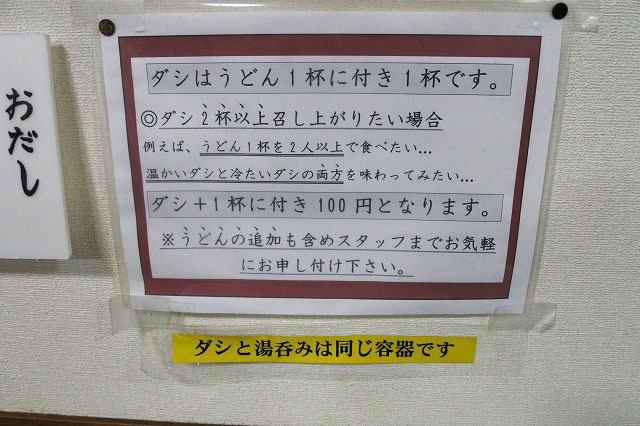 おだし
ダシはうどん1杯に付き1杯です。
◎ダシ2杯以上召し上がりたい場合
例えば、うどん1杯を2人以上で食べたい…
温かいダシと冷たいダシの両方を味わってみたい…
ダシ+1杯に付き100円となります。
※うどんの追加も含めスタッフまでお気軽
にお申し付け下さい。
ダシと湯呑みは同じ容器です